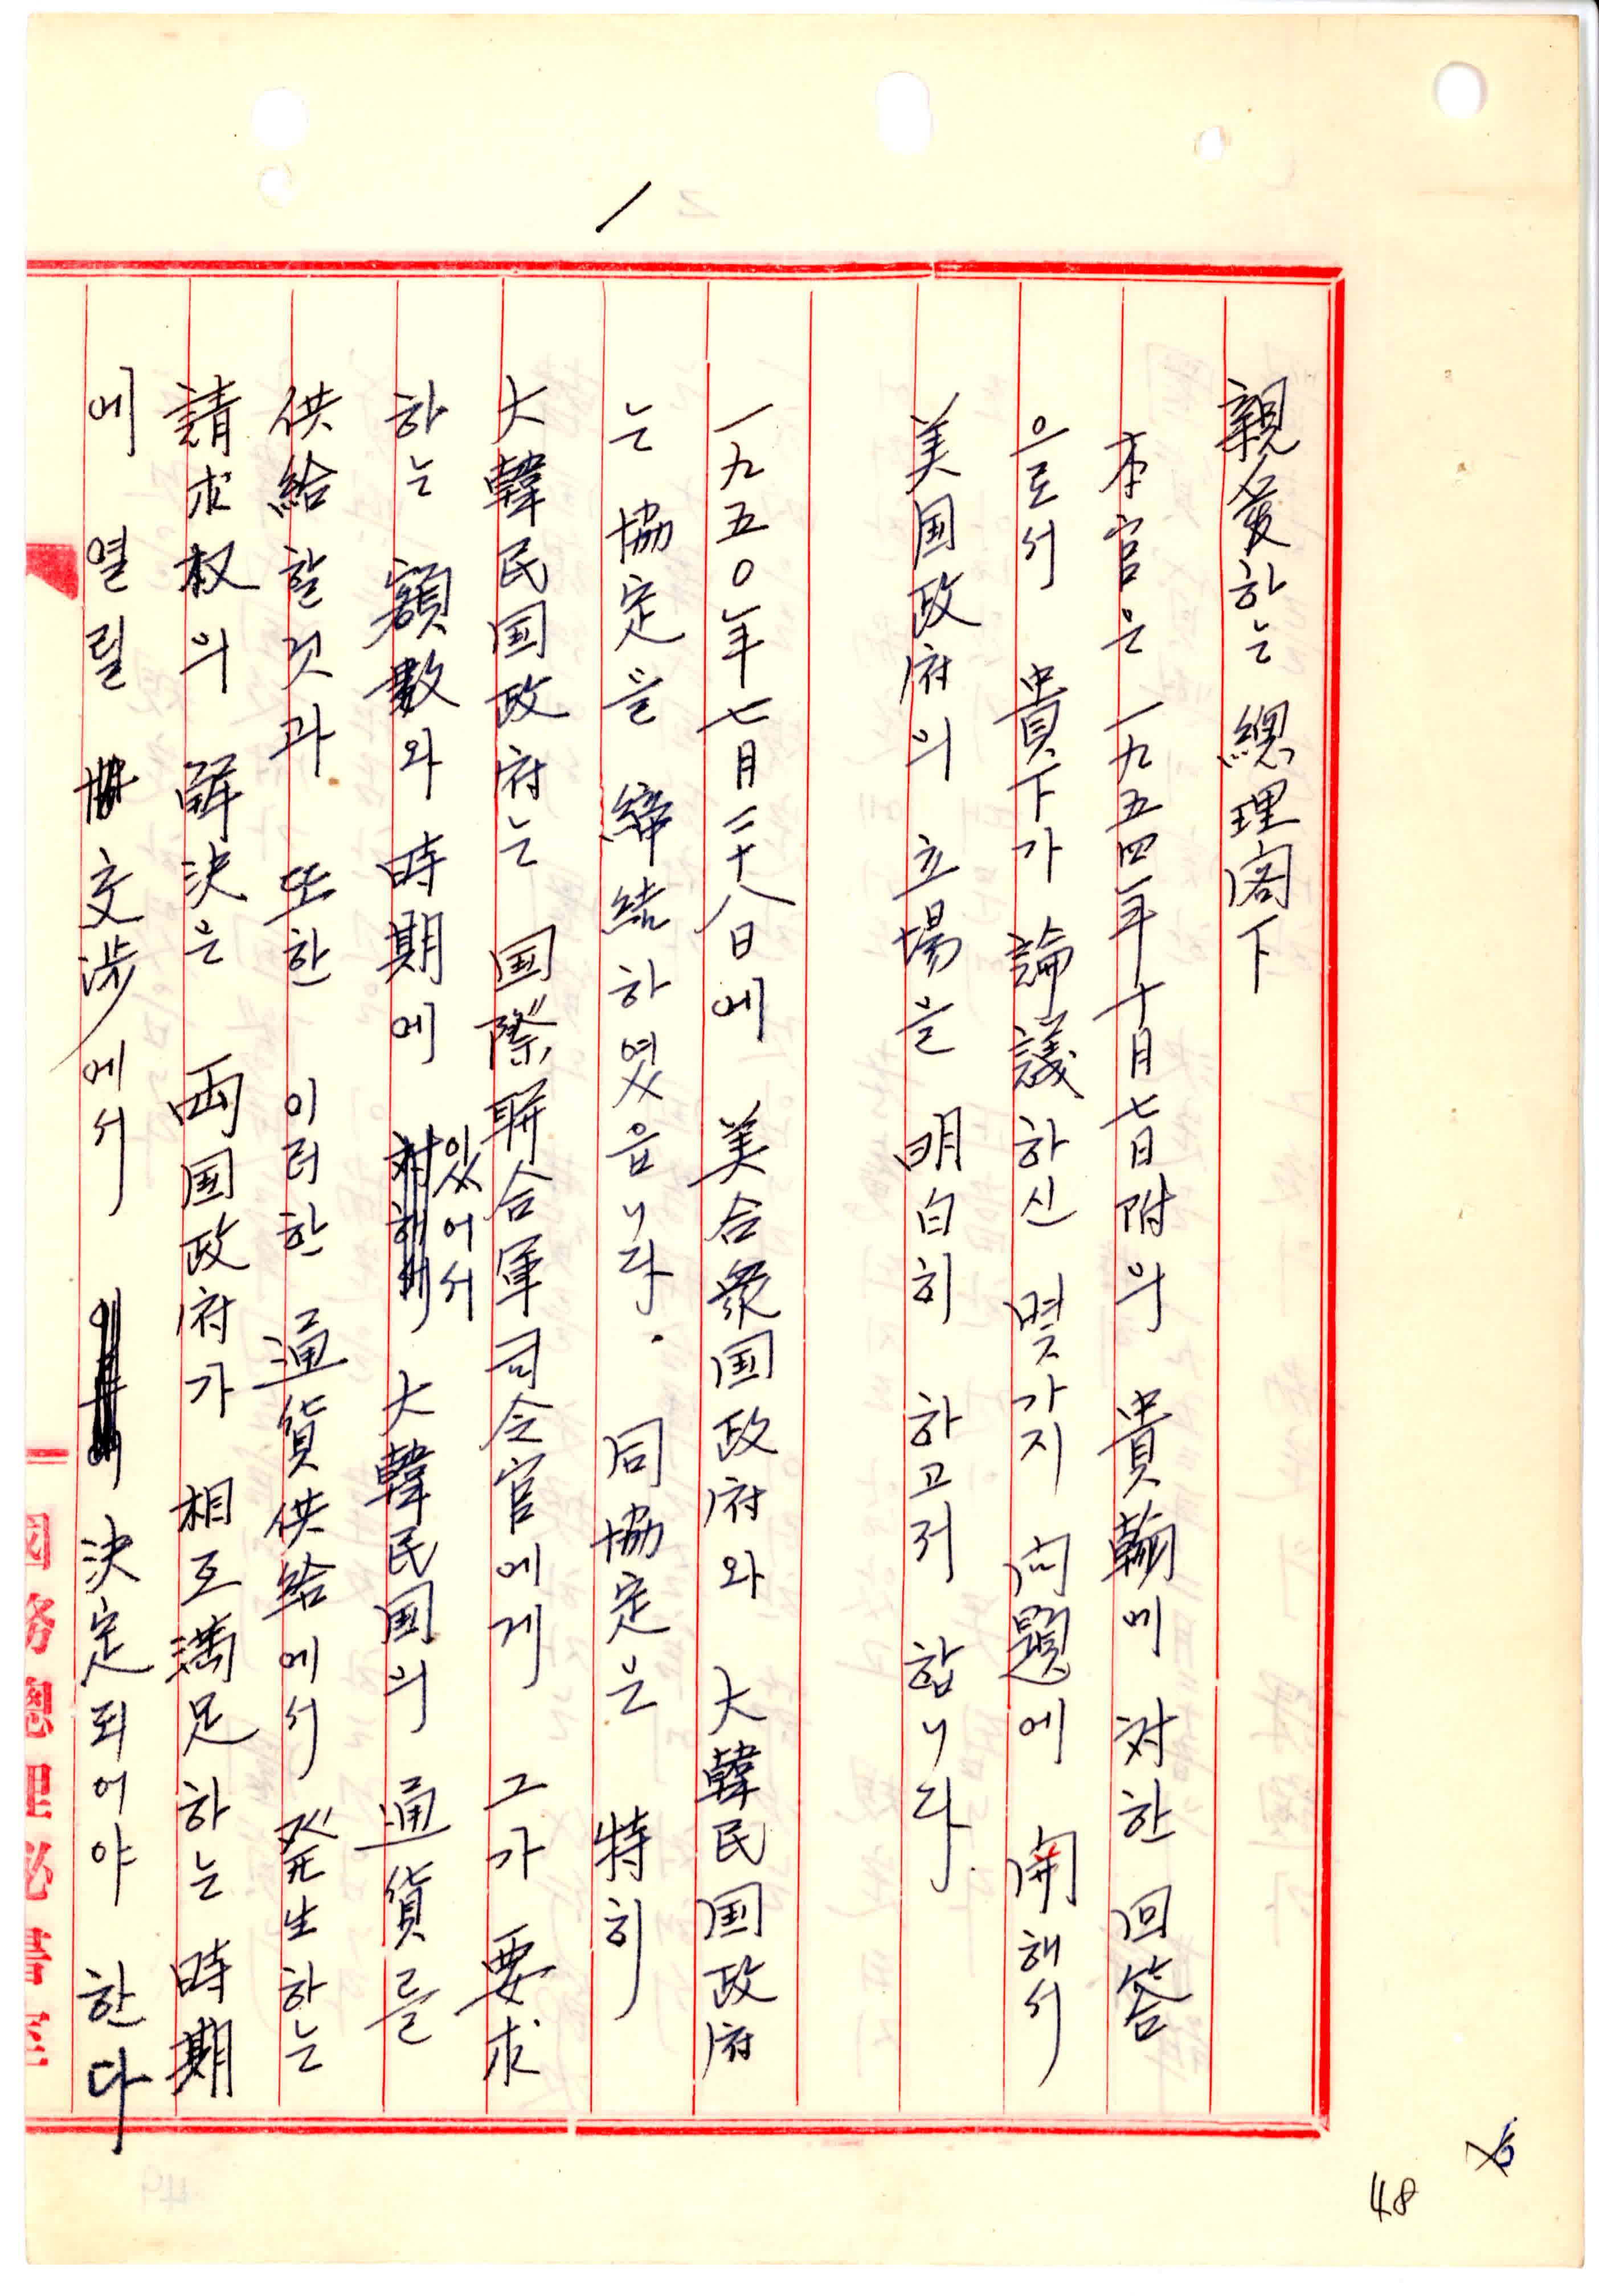 1
親愛하는 總理閣下
本官은 一九五四年十月七日附의 貴翰에 対한 回答
으로서 貴下가 論議하신 몇가지 問題에 関해서
美国政府의 立場을 明白히 하고저 합니다.
一九五〇年七月二十八日에 美合衆国政府와 大韓民国政府
는 協定을 締結하였읍니다. 同協定은 特히
大韓民国政府는 国際聯合軍司令官에게 그가 要求
하는 額數와 時期에 있어서 大韓民国의 通貨를
供給할것과 또한 이러한 通貨供給에서 発生하는
請求权의 解決은 両国政府가 相互満足하는 時期
에 열릴 交涉에서 決定되어야 한다
國務總理秘書室
48